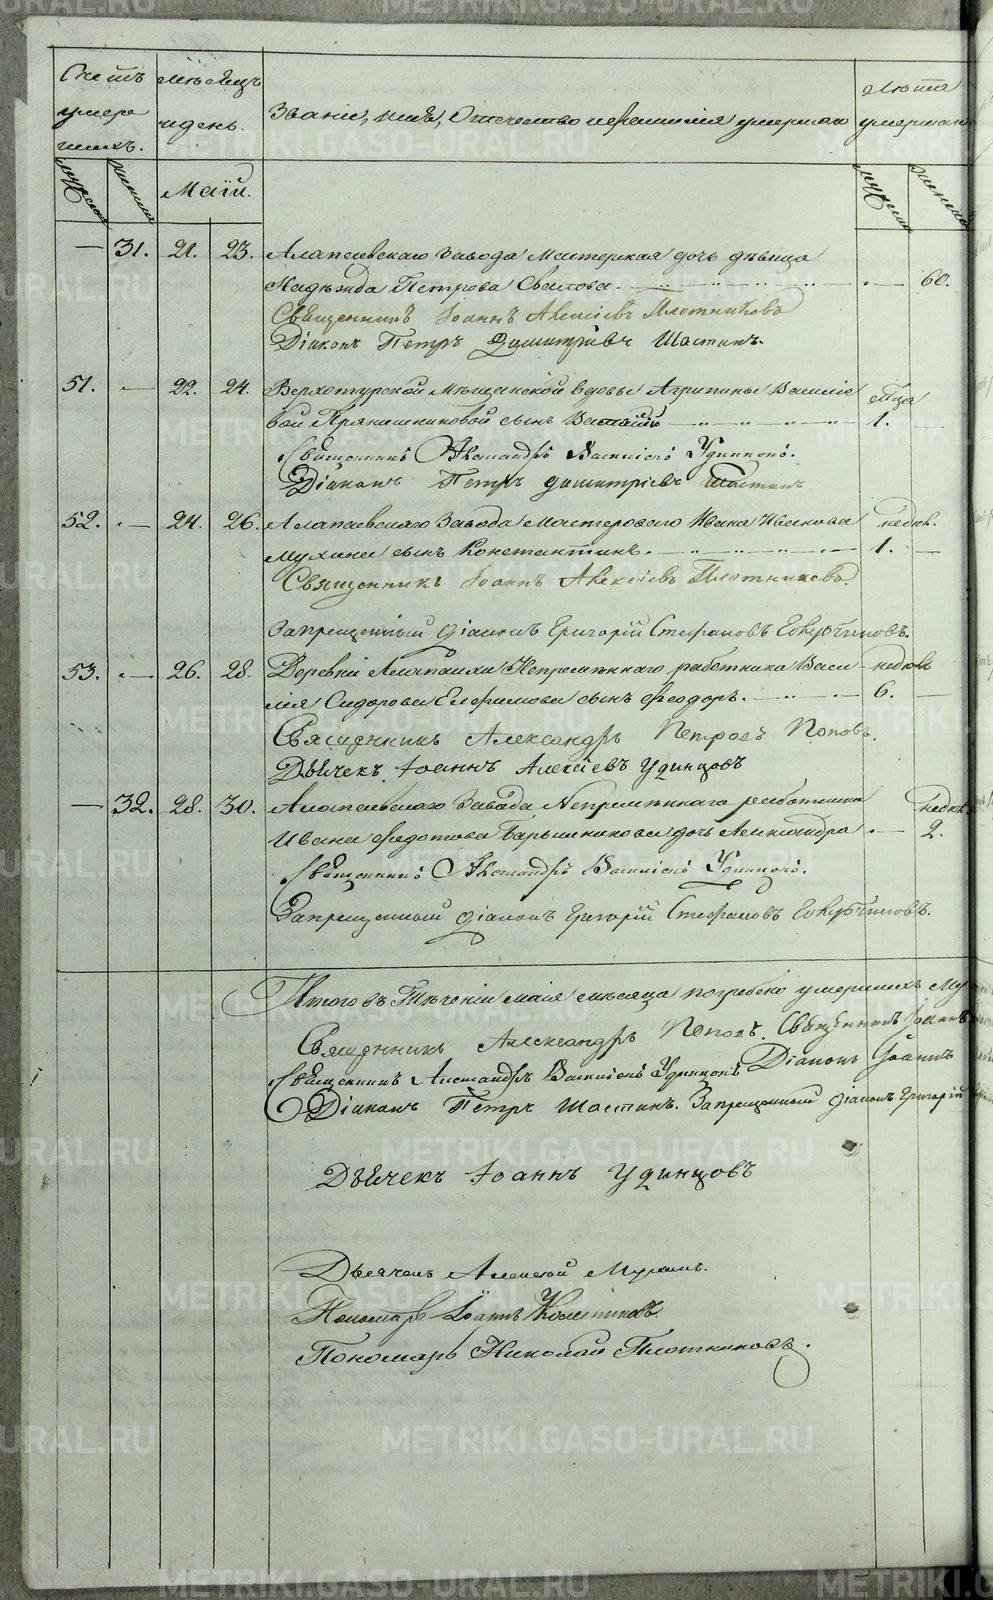 Счетъ умер шихъ.
Мѣсяцъ и день.
Званіе, имя, Отечество и фамилія умершаго
Лѣта умершаго
мужеска
женска
Маій.
мужеска
женска
— 31. 21. 23. Алапаевскаго завода Мастерская дочь дѣвица
Надѣжда Петрова — 60.
Священникъ Іоаннъ Алексіевъ Плотниковъ
Діаконъ Петръ Димитріевъ Шастинъ.
51. — 22. 24. Верхотурской Мѣщанской вдовы Агрипины Василіе
вой Прянишниковой сынъ Василій — 1.
Священникъ Александръ Васильевъ Удинцовъ.
Діаконъ Петръ Димитріевъ Шастинъ
52. — 24. 26. Алапаевскаго Завода Мастероваго Ивана Иванова недѣл.
Мухина сынъ Константинъ. — 1. —
Священникъ Іоаннъ Алексіевъ Плотниковъ.
Запрещенный діаконъ Григорій Стефановъ
53. — 26. 28. Деревни Алапаихи Непремѣннаго работника Васи- недѣль
лія Сидорова Ефимова сынъ Феодоръ. — 6. —
Священникъ Александръ Петровъ Поповъ.
Дьячекъ Іоаннъ Алексіевъ Удинцовъ
— 32. 28. 30. Алапаевскаго Завода Непремѣннаго работника недѣл.
Ивана Федотова дочь Александра — 2.
Священникъ Александръ Васильевъ Удинцовъ.
Запрещенный діаконъ Григорій Стефановъ
Итого въ Теченіи маія мѣсяца погребено умершихъ Му
Священникъ Александръ Поповъ. Священникъ Іоаннъ
Священникъ Александръ Васильевъ Удинцовъ Діаконъ Іоаннъ
Діаконъ Петръ Шастинъ. Запрещенный діаконъ Григорій
Дьячекъ Іоаннъ Удинцовъ
Дьячекъ Алексей
Пономарь Іоаннъ
Пономарь Николай Плотниковъ.
METRIKI.GASO-URAL.RU